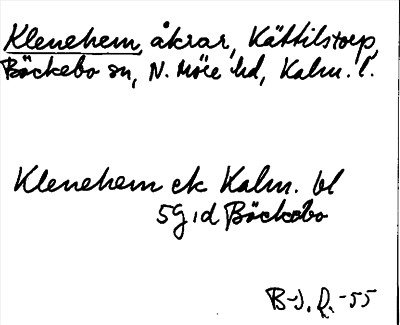 Klenehem, åkrar, Kättilstorp,
Bäckebo sn, N. Möre hd, Kalm. l.
Klenehem ek Kalm. bl
5G, d Bäckebo
B-J. R. -55